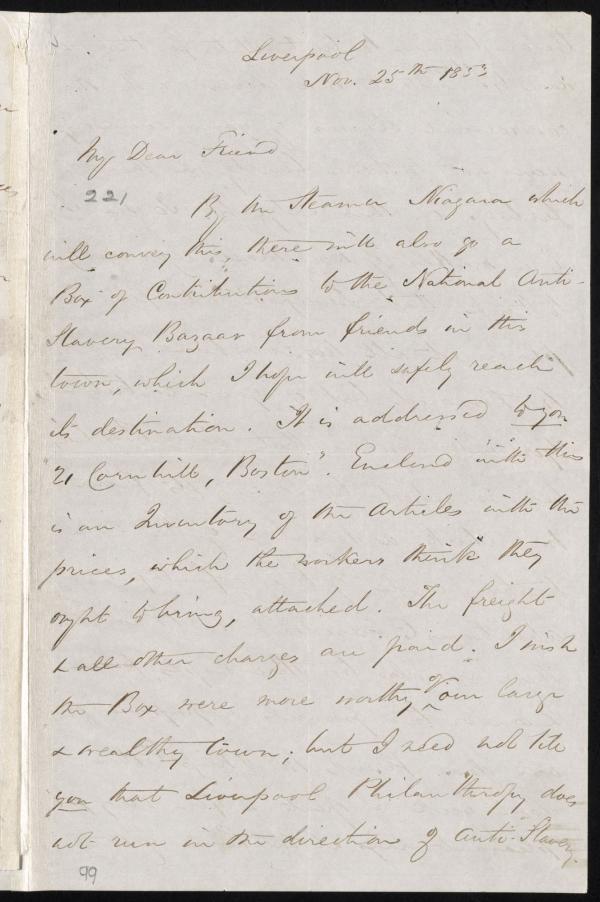 Liverpool
Nov. 25th 1853
My Dear Friend
221
By the Steamer Niagara which
will convey this, there will also go a
Box of Contributions to the National Anti-
Slavery Bazaar from friends in this
town, which I hope will safely reach
its destination. It is addressed to you
"21 Cornhill, Boston". Enclosed with this
is an Inventory of the Articles with the
prices, which the workers think they
ought to bring, attached. The freight
& all other charges are paid. I wish
the Box were more worthy of our large
& wealthy town; but I need not tell
you that Liverpool Philanthropy does
not run in the direction of Anti-Slavery.
99